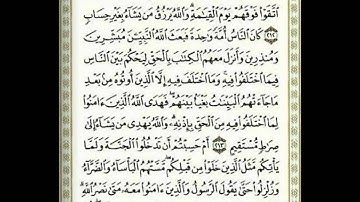 ٱتَّقَوْا۟ فَوْقَهُمْ يَوْمَ ٱلْقِيَـٰمَةِ ۗ وَٱللَّهُ يَرْزُقُ مَن يَشَآءُ بِغَيْرِ حِسَابٍ
﴿٢١٢﴾ كَانَ ٱلنَّاسُ أُمَّةً وَٰحِدَةً فَبَعَثَ ٱللَّهُ ٱلنَّبِيِّـۧنَ مُبَشِّرِينَ
وَمُنذِرِينَ وَأَنزَلَ مَعَهُمُ ٱلْكِتَـٰبَ بِٱلْحَقِّ لِيَحْكُمَ بَيْنَ ٱلنَّاسِ
فِيمَا ٱخْتَلَفُوا۟ فِيهِ ۚ وَمَا ٱخْتَلَفَ فِيهِ إِلَّا ٱلَّذِينَ أُوتُوهُ مِنۢ بَعْدِ
مَا جَآءَتْهُمُ ٱلْبَيِّنَـٰتُ بَغْيًۢا بَيْنَهُمْ ۖ فَهَدَى ٱللَّهُ ٱلَّذِينَ ءَامَنُوا۟
لِمَا ٱخْتَلَفُوا۟ فِيهِ مِنَ ٱلْحَقِّ بِإِذْنِهِۦ ۗ وَٱللَّهُ يَهْدِى مَن يَشَآءُ إِلَىٰ
صِرَٰطٍ مُّسْتَقِيمٍ ﴿٢١٣﴾ أَمْ حَسِبْتُمْ أَن تَدْخُلُوا۟ ٱلْجَنَّةَ وَلَمَّا
يَأْتِكُم مَّثَلُ ٱلَّذِينَ خَلَوْا۟ مِن قَبْلِكُم ۖ مَّسَّتْهُمُ ٱلْبَأْسَآءُ وَٱلضَّرَّآءُ
وَزُلْزِلُوا۟ حَتَّىٰ يَقُولَ ٱلرَّسُولُ وَٱلَّذِينَ ءَامَنُوا۟ مَعَهُۥ مَتَىٰ نَصْرُ ٱللَّهِ ۗ